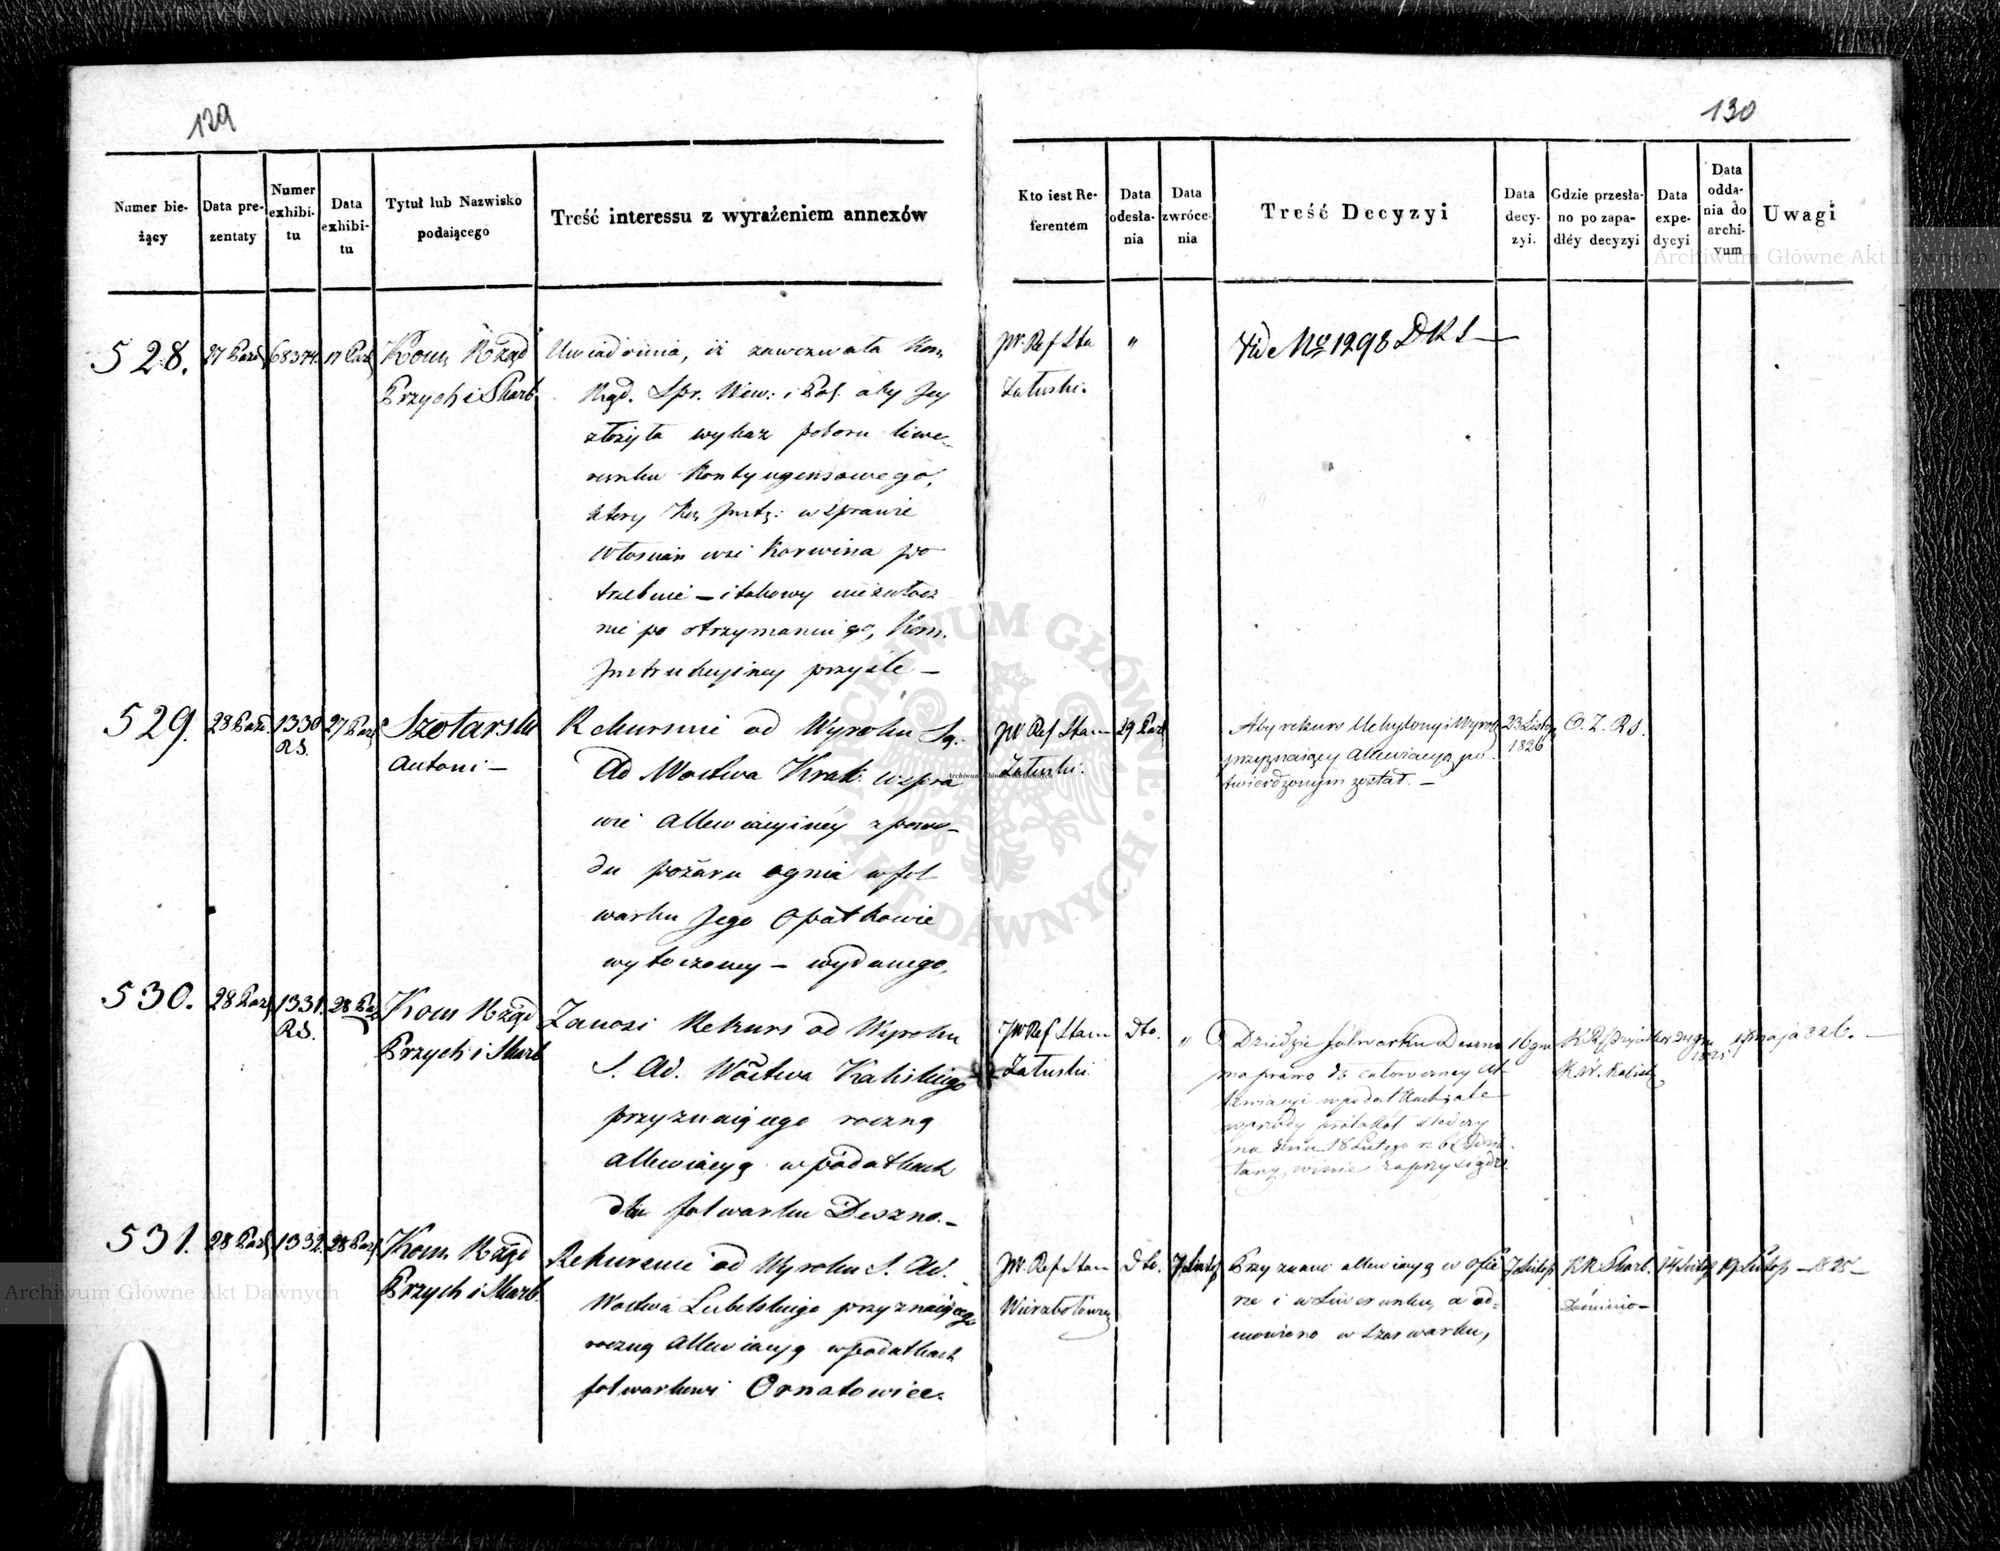 129
130
Numer bie-
żący
Data pre-
zentaty
Numer
exhibi-
tu
Data
exhibi-
tu
Tytuł lub Nazwisko
podaiącego
Treść interessu z wyrażeniem annexów
Kto iest Re-
ferentem
Data
odesła-
nia
Data
zwróce-
nia
Treść Decyzyi
Data
decy-
zyi.
Gdzie przesła-
no po zapa-
dłéy decyzyi
Data
expe-
dycyi
Data
odda-
nia do
archi-
vum
Uwagi
Archiwum Główne Akt Dawnych
528.
27 Paźd
68374
17 Paź
Kom. Rząd
Przych i Skarb.
Uwiadomia, iż zawezwała Kom.
Rząd. Spr. Wew: i Pol. aby Jey
złożyła wykaz poboru liwe-
runku Kontyngensowego,
który Kom. Instr: w sprawie
włościan wsi Karwina po
trzebuie – i takowy niezwłocz
nie po otrzymaniu go, Kom.
Instrukcyiney przyśle –
JW. Ref Sta
Załuski.
"
Vid No 1298 DKS —
529.
28 Paźd.
1330
RS.
27 Paź
Szotarski
Antoni –
Rekursuie od Wyroku Są.
Ad Wodztwa Krak. w spra
wie allewiacyinéy z powo-
du pożaru ognia w fol
warku Jego Opatkowie
wytoczoney – wydanego,
JW Ref Stan
Załuski.
29 Paź
Aby rekurs Uchylony i Wyrok
przyznaiący Allewiacyą po-
twierdzonym został. –
23 Listop
1826
O. Z. RS.
530.
28 Paź
1331.
RS.
28 Paź
Kom Rząd
Przych i Skarb
Zanosi Rekurs od Wyroku
S. Ad. Wodztwa Kaliskiego
przyznaiącego roczną
allewiacyą w podatkach
dla folwarku Deszno. –
JW Ref Stan
Załuski
Dto.
"
Dziedzic folwarku Deszno
ma prawo do całoroczney al
lewiacyi w podatkach, ale
wprzódy protokół śledczy
na dniu 18 Lutego r. b.
winien zaprzysiądz
16 gru
K.W. Kalisk
1825
maja 826. —
531.
28 Paź
1332.
28 Paź
Kom. Rząd
Przych i Skarb.
Rekursuie od Wyroku S. Ad.
Wodztwa Lubelskiego przyznaiącego
roczną allewiacyą w podatkach
folwarkowi Ornatowice.
JW. Ref Stan
Wierzbołowicz
Dto.
7 Lutop
Przyznano allewiacyą w ofie
rze i w Liwerunku, a od-
mówiono w szarwarku,
7 Lutop
KR Skarb.
Dominio—
14 Lutop
19 Lutop – 1825 –
Archiwum Główne Akt Dawnych
ARCHIWUM GŁÓWNE AKT DAWNYCH